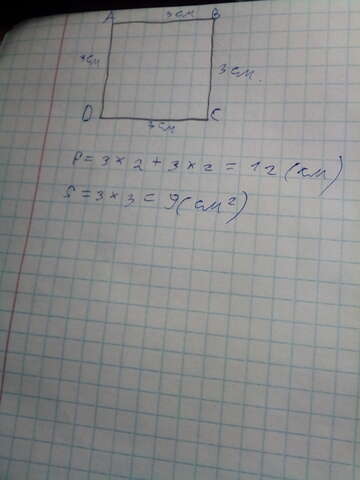 A 3 см B
3 см
3 см.
D 3 см C
P = 3 × 2 + 3 × 2 = 12 (см)
S = 3 × 3 = 9 (см²)